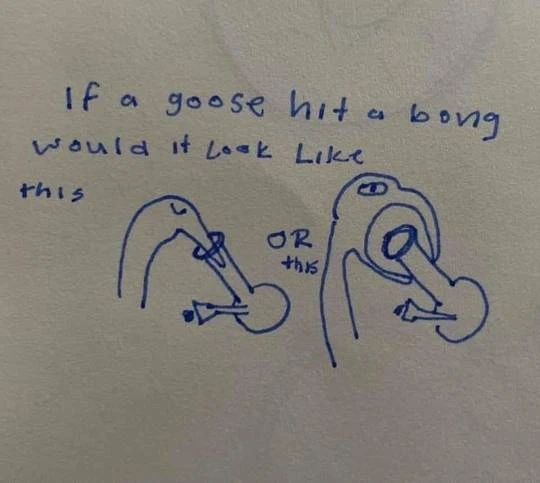 If a goose hit a bong
would it look like
this
OR
this